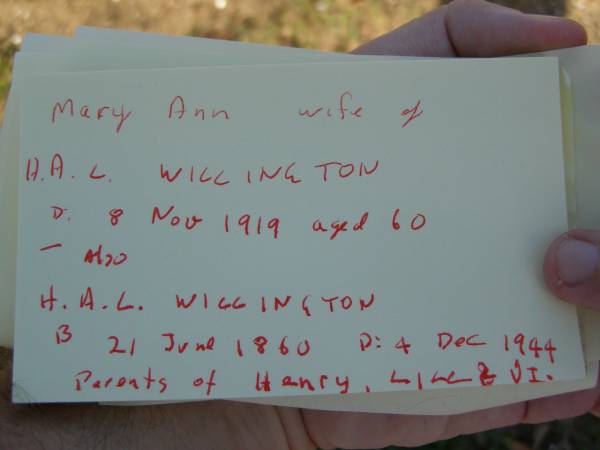 Mary Ann wife of
H.A.L. WILLINGTON
D: 8 Nov 1919 aged 60
— Also
H.A.L. WILLINGTON
B 21 June 1860 D: 4 Dec 1944
Parents of Henry, LILL & VI.